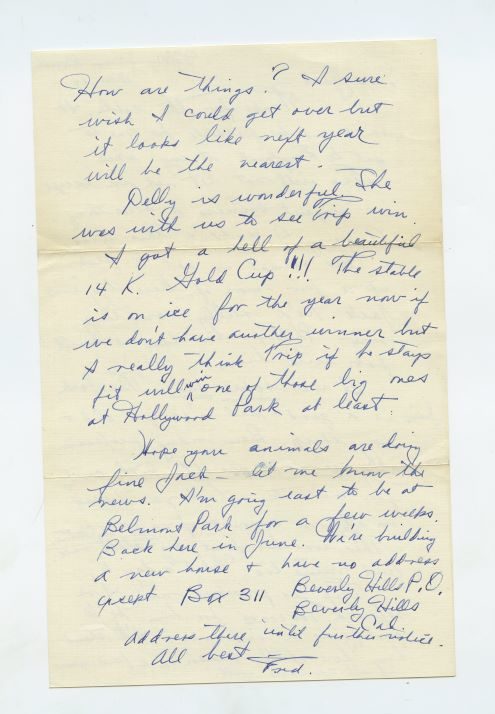 How are things? I sure
wish I could get over but
it looks like next year
will be the nearest.
Delly is wonderful. She
was with us to see Trip win.
I got a hell of a beautiful
14 K. Gold Cup!!! The stable
is on ice for the year now if
we don't have another winner but
I really think Trip if he stays
fit will win one of those big ones
at Hollywood Park at least.
Hope your animals are doing
fine Jack – let me know the
news. I'm going east to be at
Belmont Park for a few weeks.
Back here in June. We're building
a new house & have no address
except Box 311 Beverly Hills P.O.
Beverly Hills
Cal.
address there until further notice.
All best –
Fred.